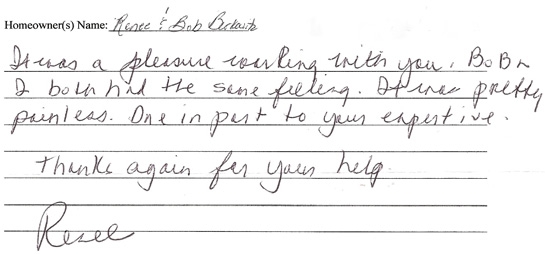 Homeowner(s) Name: Renee & Bob Beckwith
It was a pleasure working with you. Bob &
I both had the same feeling. It was pretty
painless. Due in part to your expertise.
Thanks again for your help
Renee